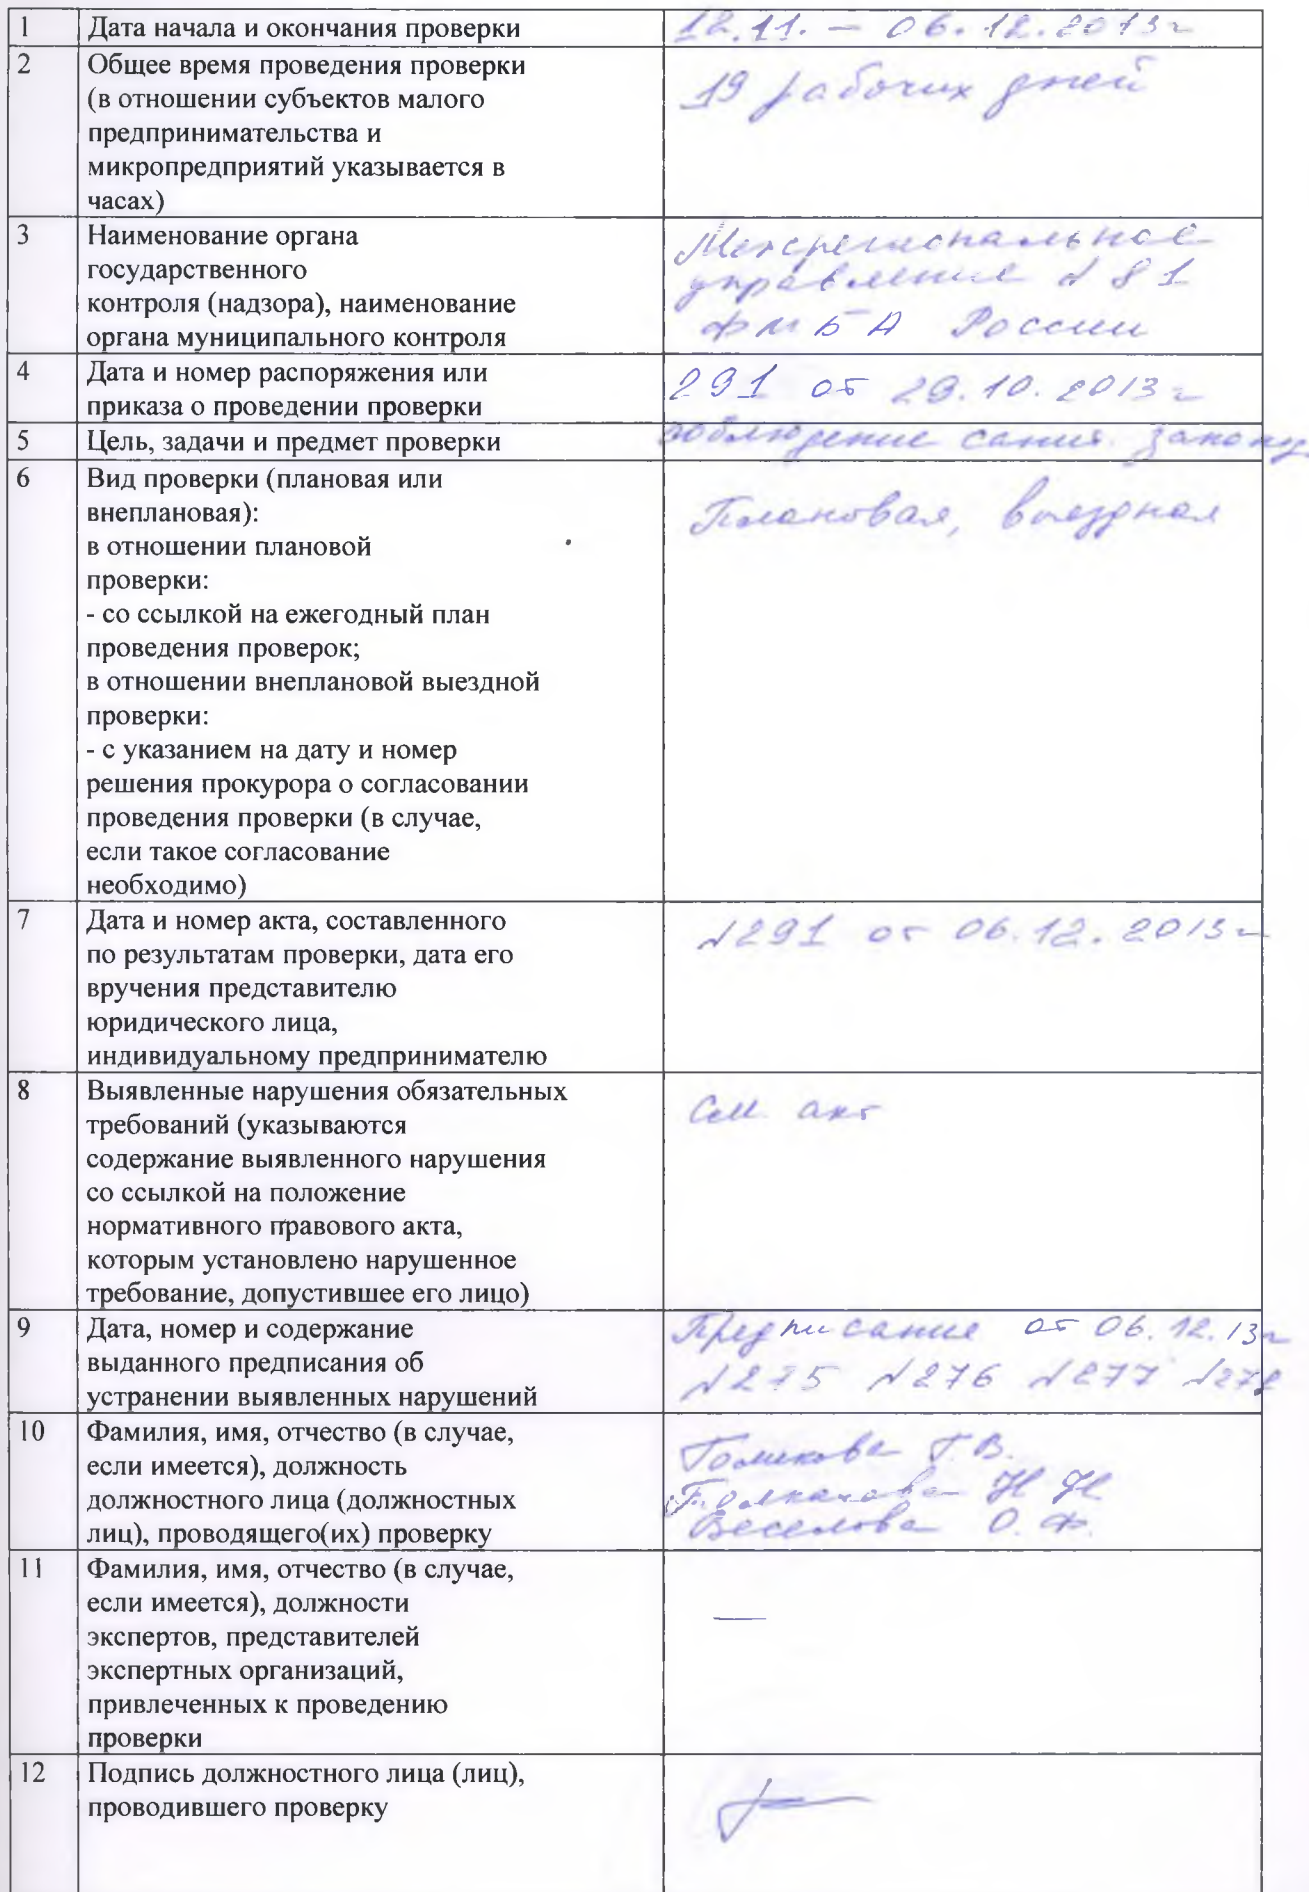 1 Дата начала и окончания проверки 12.11. – 06.12.2013г
2 Общее время проведения проверки
(в отношении субъектов малого
предпринимательства и
микропредприятий указывается в
часах)
19 рабочих дней
3 Наименование органа
государственного
контроля (надзора), наименование
органа муниципального контроля
Межрегиональное
управление №81
ФМБА России
4 Дата и номер распоряжения или
приказа о проведении проверки
291 от 29.10.2013г
5 Цель, задачи и предмет проверки соблюдение санит. законод.
6 Вид проверки (плановая или
внеплановая):
в отношении плановой
проверки:
- со ссылкой на ежегодный план
проведения проверок;
в отношении внеплановой выездной
проверки:
- с указанием на дату и номер
решения прокурора о согласовании
проведения проверки (в случае,
если такое согласование
необходимо)
Плановая, выездная
7 Дата и номер акта, составленного
по результатам проверки, дата его
вручения представителю
юридического лица,
индивидуальному предпринимателю
№291 от 06.12.2013г
8 Выявленные нарушения обязательных
требований (указываются
содержание выявленного нарушения
со ссылкой на положение
нормативного правового акта,
которым установлено нарушенное
требование, допустившее его лицо)
См. акт
9 Дата, номер и содержание
выданного предписания об
устранении выявленных нарушений
Предписание от 06.12.13г
№275 №276 №277 №278
10 Фамилия, имя, отчество (в случае,
если имеется), должность
должностного лица (должностных
лиц), проводящего(их) проверку
Т.В.
Н Н
Веселова О.Ф.
11 Фамилия, имя, отчество (в случае,
если имеется), должности
экспертов, представителей
экспертных организаций,
привлеченных к проведению
проверки
—
12 Подпись должностного лица (лиц),
проводившего проверку